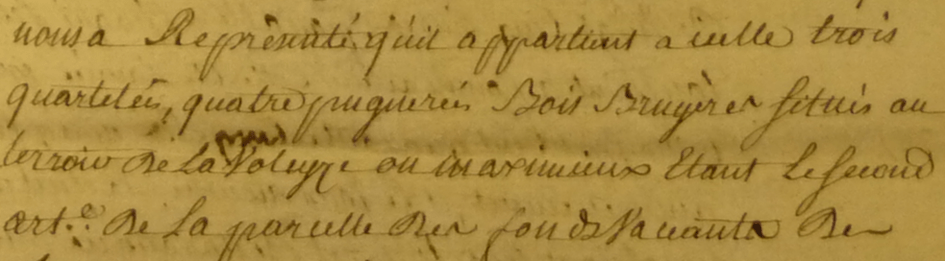 nous a Représenté, qu'il appartient a icelle trois
quartelés, quatre pugnerés Bois Bruyères situés au
terroir De La ou maximieux Etant Le second
art.e De La parcelle Des fonds Vacants De